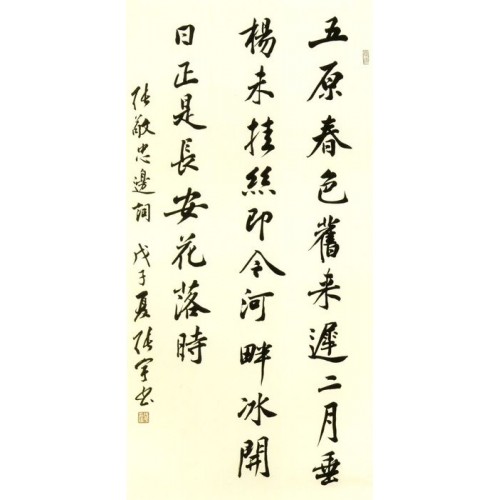 五原春色舊来遲二月垂
楊未挂絲即今河畔冰開
日正是長安花落時
張敬忠邊詞 戊子夏張宇書